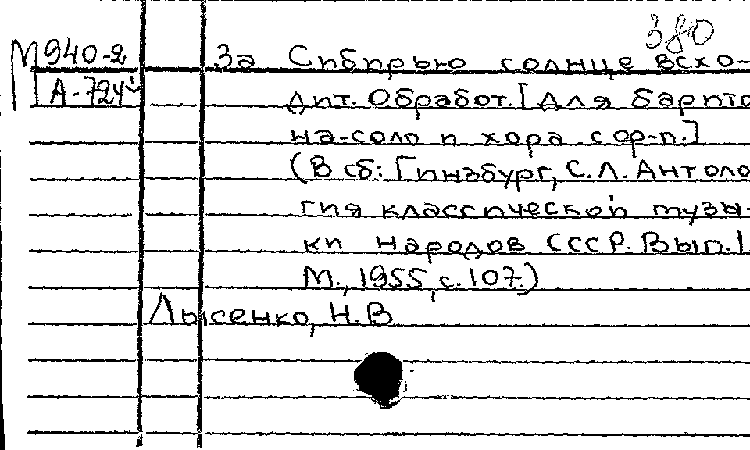 380
М940-2 За Сибирью солнце всхо-
А-724 дит. Обработ. [Для барито
на-соло и хора с ор-п.]
(В сб: Гинзбург, С.Л. Антоло
гия классической музы-
ки народов СССР. Вып.1
М., 1955, с.107.)
Лысенко, Н.В